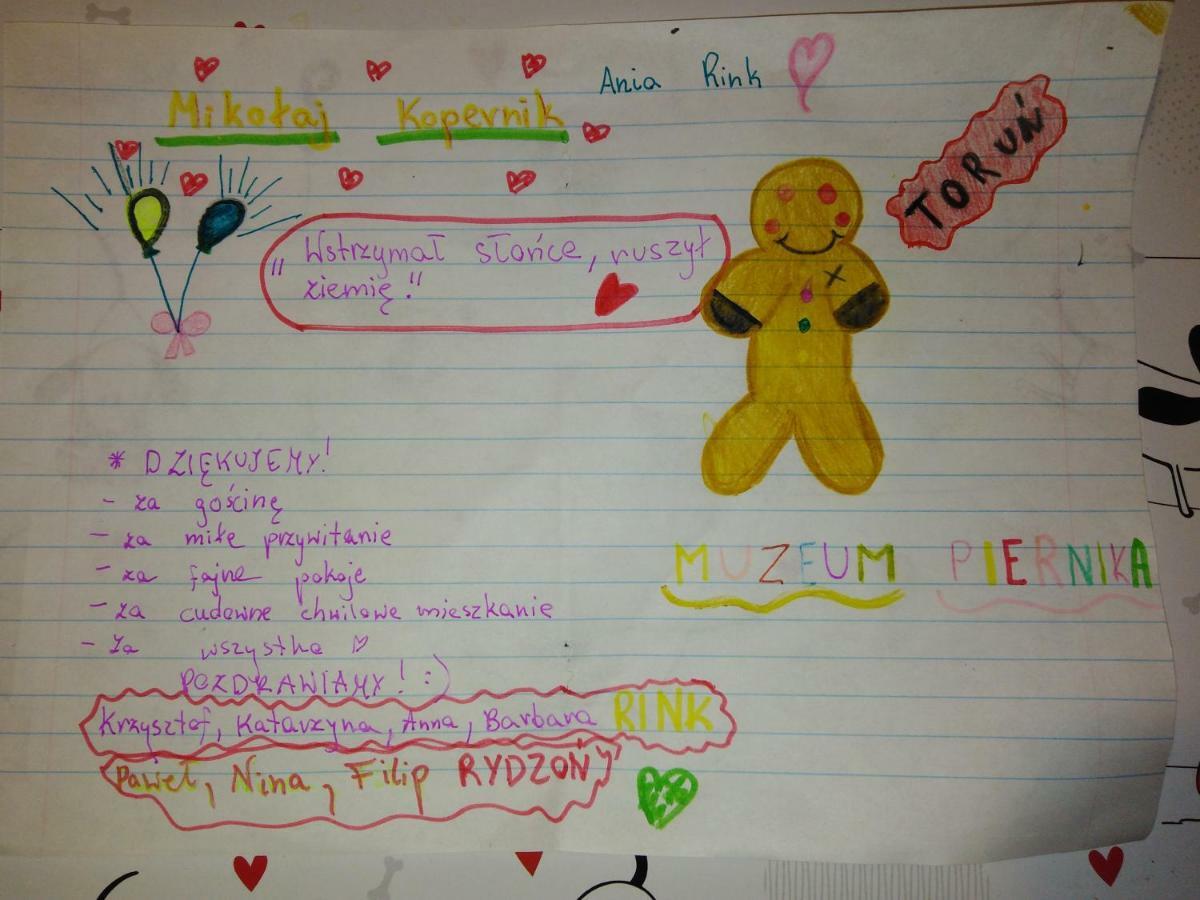 Ania Rink
Mikołaj Kopernik
TORUŃ
„Wstrzymał słońce, ruszył
ziemię."
* DZIĘKUJEMY!
- za gościnę
- za miłe przywitanie
- za fajne pokoje
- za cudowne chwilowe mieszkanie
- za wszystko
POZDRAWIAMY! :)
MUZEUM PIERNIKA
Krzysztof, Katarzyna, Anna, Barbara RINK
Paweł, Nina, Filip RYDZOŃ